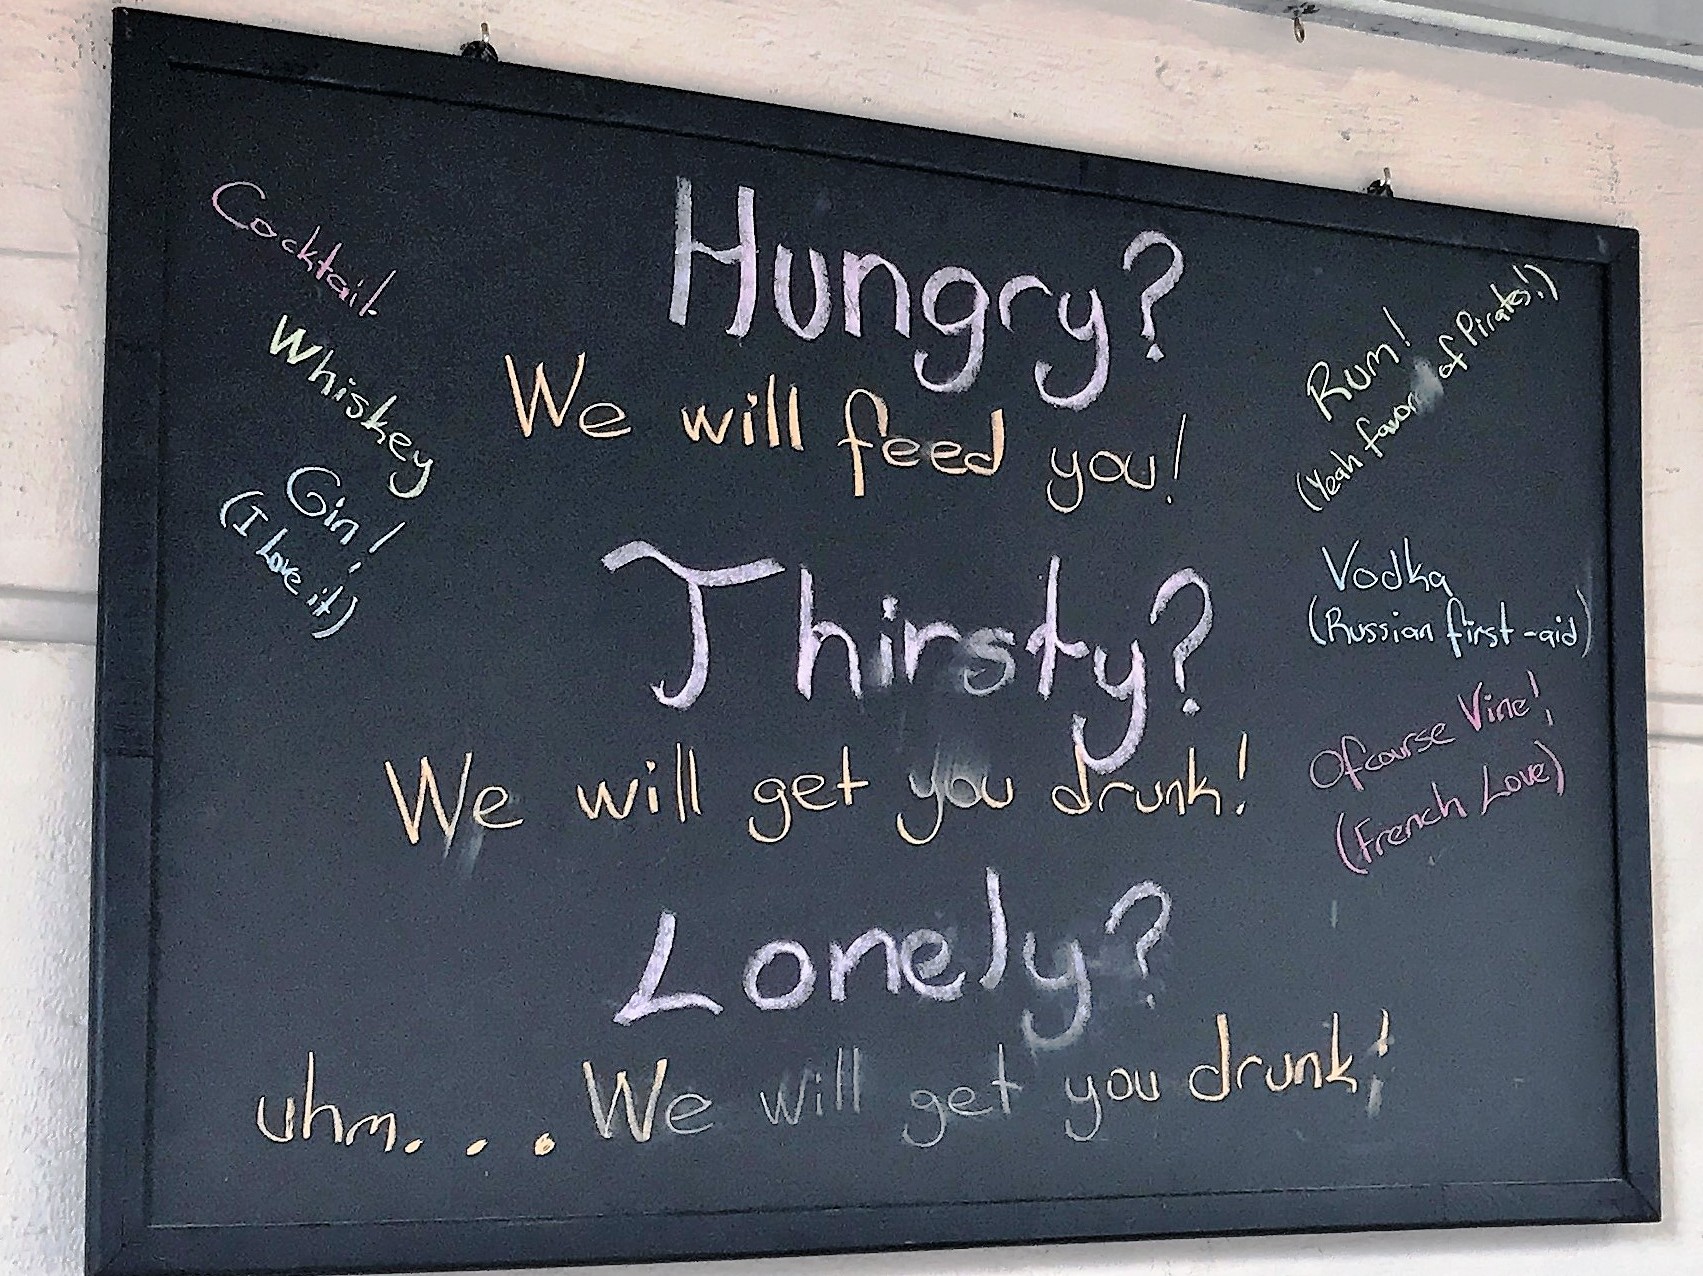 Cocktail!
Whiskey
Gin!
(I Love it)
Hungry?
We will feed you!
Thirsty?
We will get you drunk!
Lonely?
uhm... We will get you drunk!
Rum!
(Yeah of Pirates!)
Vodka
(Russian first-aid)
Ofcourse Vine!
(French Love)